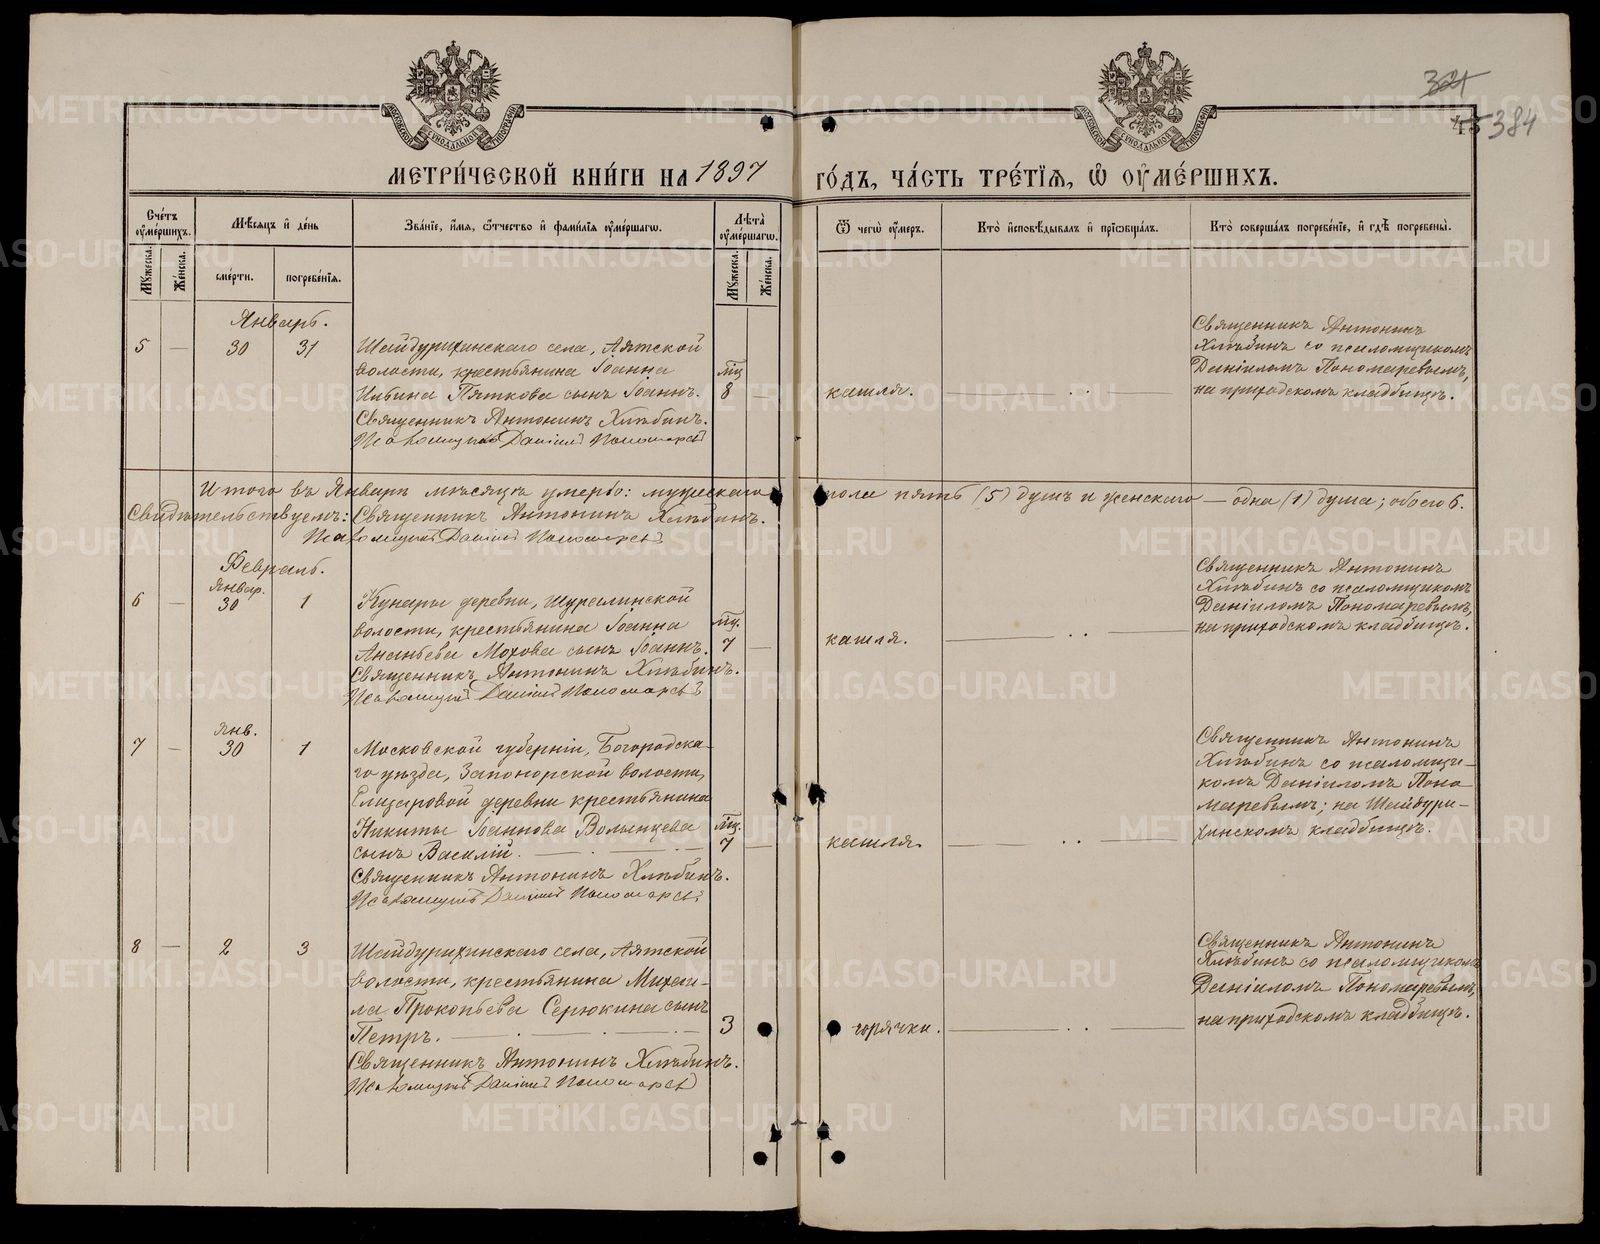 321
43 384
МЕТРИ́ЧЕСКОЙ КНИ́ГИ НА 1897 ГО́ДЪ, ЧА́СТЬ ТРЕ́ТІѦ, Ѡ ОУМЕ́РШИХЪ.
Сче́тъ оумéршихъ.
Мѣсяцъ и день
Зва́ніе, и́мѧ, ѻ́тчество и фами́лія оумéршагѡ.
Лѣта̀ оумéршагѡ.
Ѿ чегѡ̀ оу́меръ.
Кто̀ исповѣ́дывалъ и прїѡбща́лъ.
Кто̀ соверша́лъ погребе́ніе, и гдѣ̀ погребены̀.
Мꙋжеска. Же́нска.
сме́рти. погребе́нїѧ.
Мꙋжеска. Же́нска.
Январь.
5 — 30 31
Шайдурихинскаго села, Аятской
волости, крестьянина Іоанна
Ивина Пяткова сынъ Іоаннъ.
мц 8 —
Священникъ Антонинъ Хлѣбинъ.
Псаломщикъ Даніилъ Пономаревъ
кашля.
Священникъ Антонинъ
Хлѣбинъ со псаломщикомъ
Даніиломъ Пономаревымъ,
на приходскомъ кладбищѣ.
Итого въ Январѣ мѣсяцѣ умерло: мужескаго пола пять (5) душъ и женскаго — одна (1) душа; обоего 6.
Свидѣтельствуемъ: Священникъ Антонинъ Хлѣбинъ.
Псаломщикъ Даніилъ Пономаревъ
Февраль.
Январ.
6 — 30 1
Кунары деревни, Шуралинской
волости, крестьянина Іоанна
Ананьева Мохова сынъ Іоаннъ.
мц. 7 —
Священникъ Антонинъ Хлѣбинъ.
Псаломщикъ Даніилъ Пономаревъ
кашля.
Священникъ Антонинъ
Хлѣбинъ со псаломщикомъ
Даніиломъ Пономаревымъ,
на приходскомъ кладбищѣ.
Янв.
7 — 30 1
Московской губерніи, Богородска-
го уѣзда, Запонорской волости,
Елизаровой деревни крестьянина
Никиты Іоаннова Волынцева
сынъ Василій.
мц. 7 —
Священникъ Антонинъ Хлѣбинъ.
Псаломщикъ Даніилъ Пономаревъ
кашля.
Священникъ Антонинъ
Хлѣбинъ со псаломщи-
комъ Даніиломъ Поно-
маревымъ; на Шайдури-
хинскомъ кладбищѣ.
8 — 2 3
Шайдурихинскаго села, Аятской
волости, крестьянина Михаи-
ла Прокопьева Серюкина сынъ
Петръ.
3
Священникъ Антонинъ Хлѣбинъ.
Псаломщикъ Даніилъ Пономаревъ
горячки.
Священникъ Антонинъ
Хлѣбинъ со псаломщикомъ
Даніиломъ Пономаревымъ,
на приходскомъ кладбищѣ.
METRIKI.GASO-URAL.RU